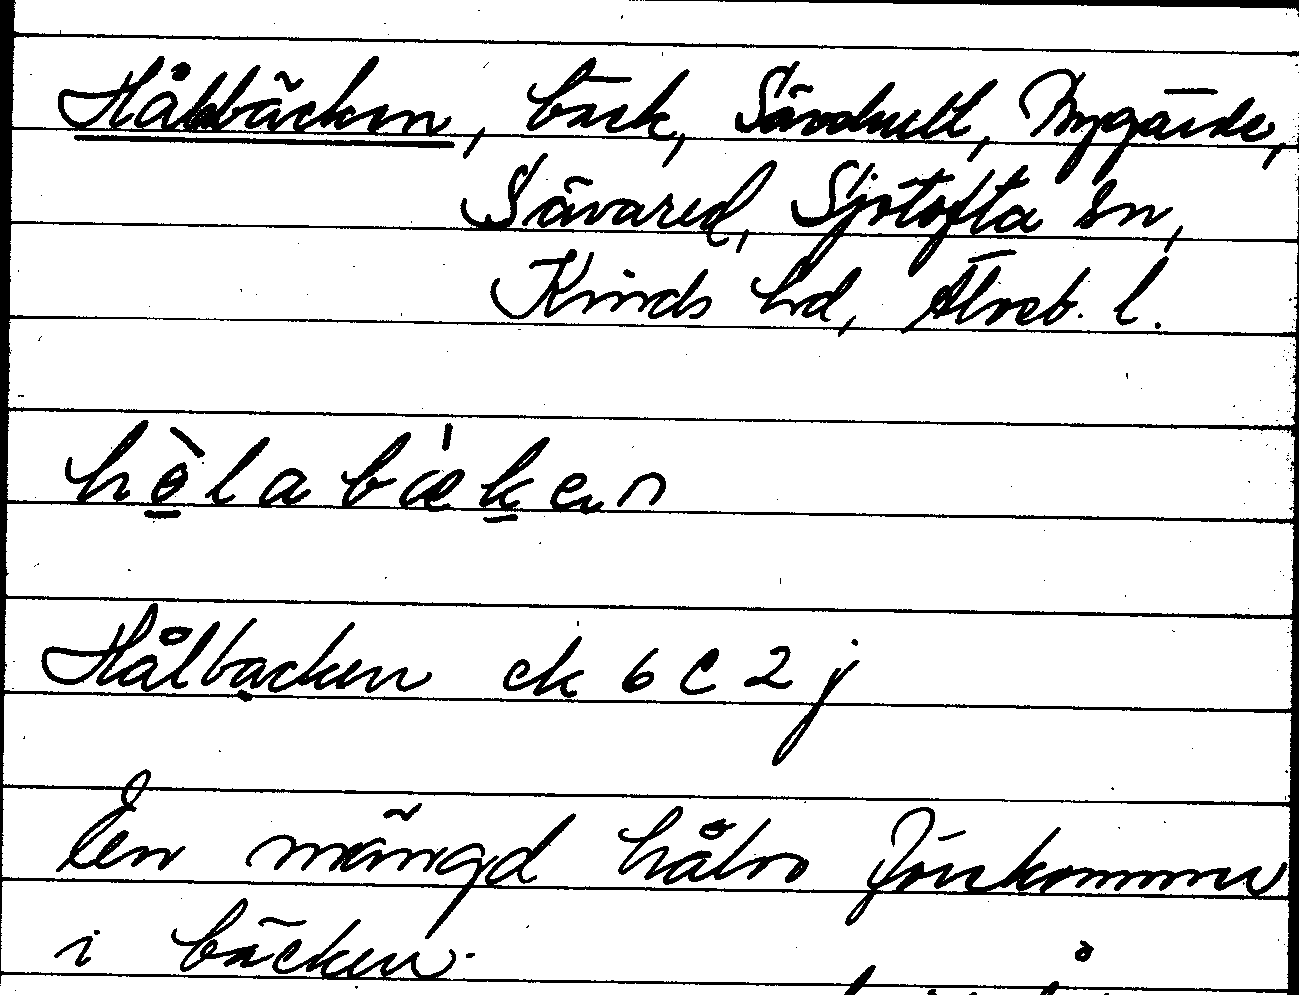 Hålbäcken, bäck, Sävshult, Nygärde,
Sävared, Sjötofta sn,
Kinds hd, Älvsb. l.
hòlabæ̍ken
Hålbäcken ek 6 C 2 j
En mängd hålor förekommer
i bäcken.